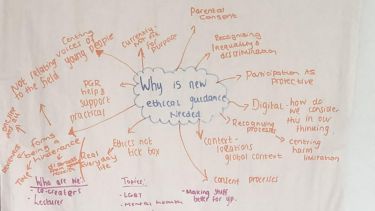 Parental
Consent
Centring
voices of
young people
Currently
not fit
for
purpose
Recognising
Inequality &
discrimination
Not relating
to the field
PGR
help &
support
practical
Why is new
ethical guidance
Needed
Participation AS
Protective
Digital - how do
we consider
this in our
thinking
Recognising
processes
centring
harm
limitation
Forms
being a
hinderance
Time
Real
Everyday
life
Ethics not
tick box
context -
locations
global context
consent processes
Who are we?
- co-creators
- Lecturer
Topics:
- LGBT
- Mental Health
- Making stuff
better for yp.